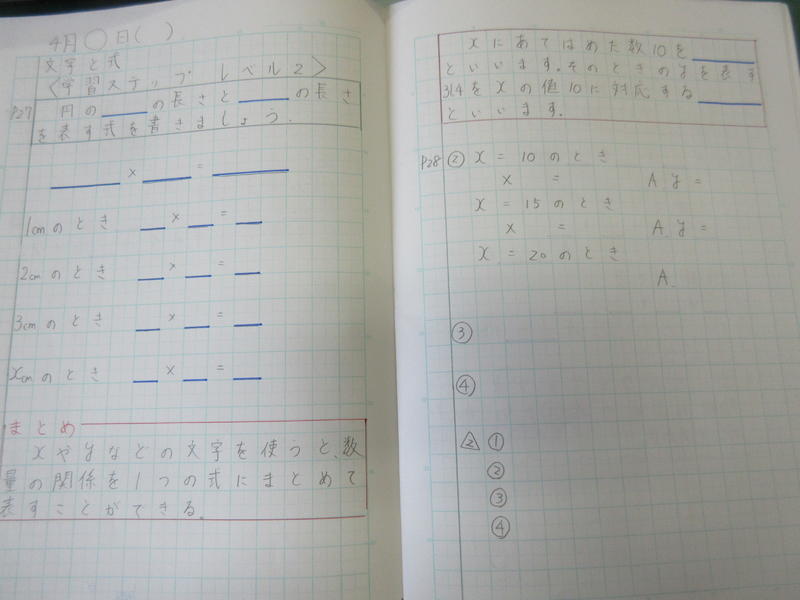 4月○日( )
文字と式
〈学習ステップ レベル2〉
P27 円の____の長さと____の長さ
を表す式を書きましょう.
____×____=____
1cmのとき __×__=__
2cmのとき __×__=__
3cmのとき __×__=__
xcmのとき __×__=__
まとめ
xやyなどの文字を使うと、数
量の関係を1つの式にまとめて
表すことができる。
xにあてはめた数10を____
といいます.そのときのyを表す
314をxの値10に対応する____
といいます.
P28 ② x=10のとき
× = A y=
x=15のとき
× = A y=
x=20のとき
A.
③
④
△2 ①
②
③
④